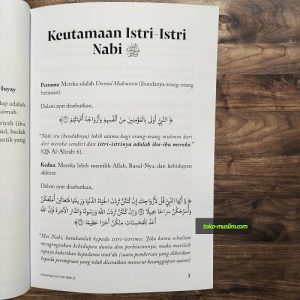 Huyay
dup adalah
Keutamaan Istri-Istri
Nabi ﷺ
Pertama: Mereka adalah Ummul Mukminin (ibundanya orang-orang
beriman).
Dalam ayat disebutkan,
﴿ النَّبِيُّ أَوْلَى بِالْمُؤْمِنِينَ مِنْ أَنْفُسِهِمْ وَأَزْوَاجُهُ أُمَّهَاتُهُمْ ﴾
"Nabi itu (hendaknya) lebih utama bagi orang-orang mukmin dari
diri mereka sendiri dan istri-istrinya adalah ibu-ibu mereka."
(QS. Al-Ahzab: 6).
Kedua: Mereka lebih memilih Allah, Rasul-Nya, dan kehidupan
akhirat.
Dalam ayat disebutkan,
﴿ يَا أَيُّهَا النَّبِيُّ قُلْ لِأَزْوَاجِكَ إِنْ كُنْتُنَّ تُرِدْنَ الْحَيَاةَ الدُّنْيَا وَزِينَتَهَا فَتَعَالَيْنَ أُمَتِّعْكُنَّ
وَأُسَرِّحْكُنَّ سَرَاحًا جَمِيلًا وَإِنْ كُنْتُنَّ تُرِدْنَ اللَّهَ وَرَسُولَهُ وَالدَّارَ الْآخِرَةَ فَإِنَّ اللَّهَ
أَعَدَّ لِلْمُحْسِنَاتِ مِنْكُنَّ أَجْرًا عَظِيمًا ﴾
toko-muslim.com
"Hai Nabi, katakanlah kepada istri-istrimu: "Jika kamu sekalian
menginginkan kehidupan dunia dan perhiasannya, maka marilah
supaya kuberikan kepadamu mut'ah (suatu pemberian yang diberikan
kepada perempuan yang telah diceraikan menurut kesanggupan suami)
3